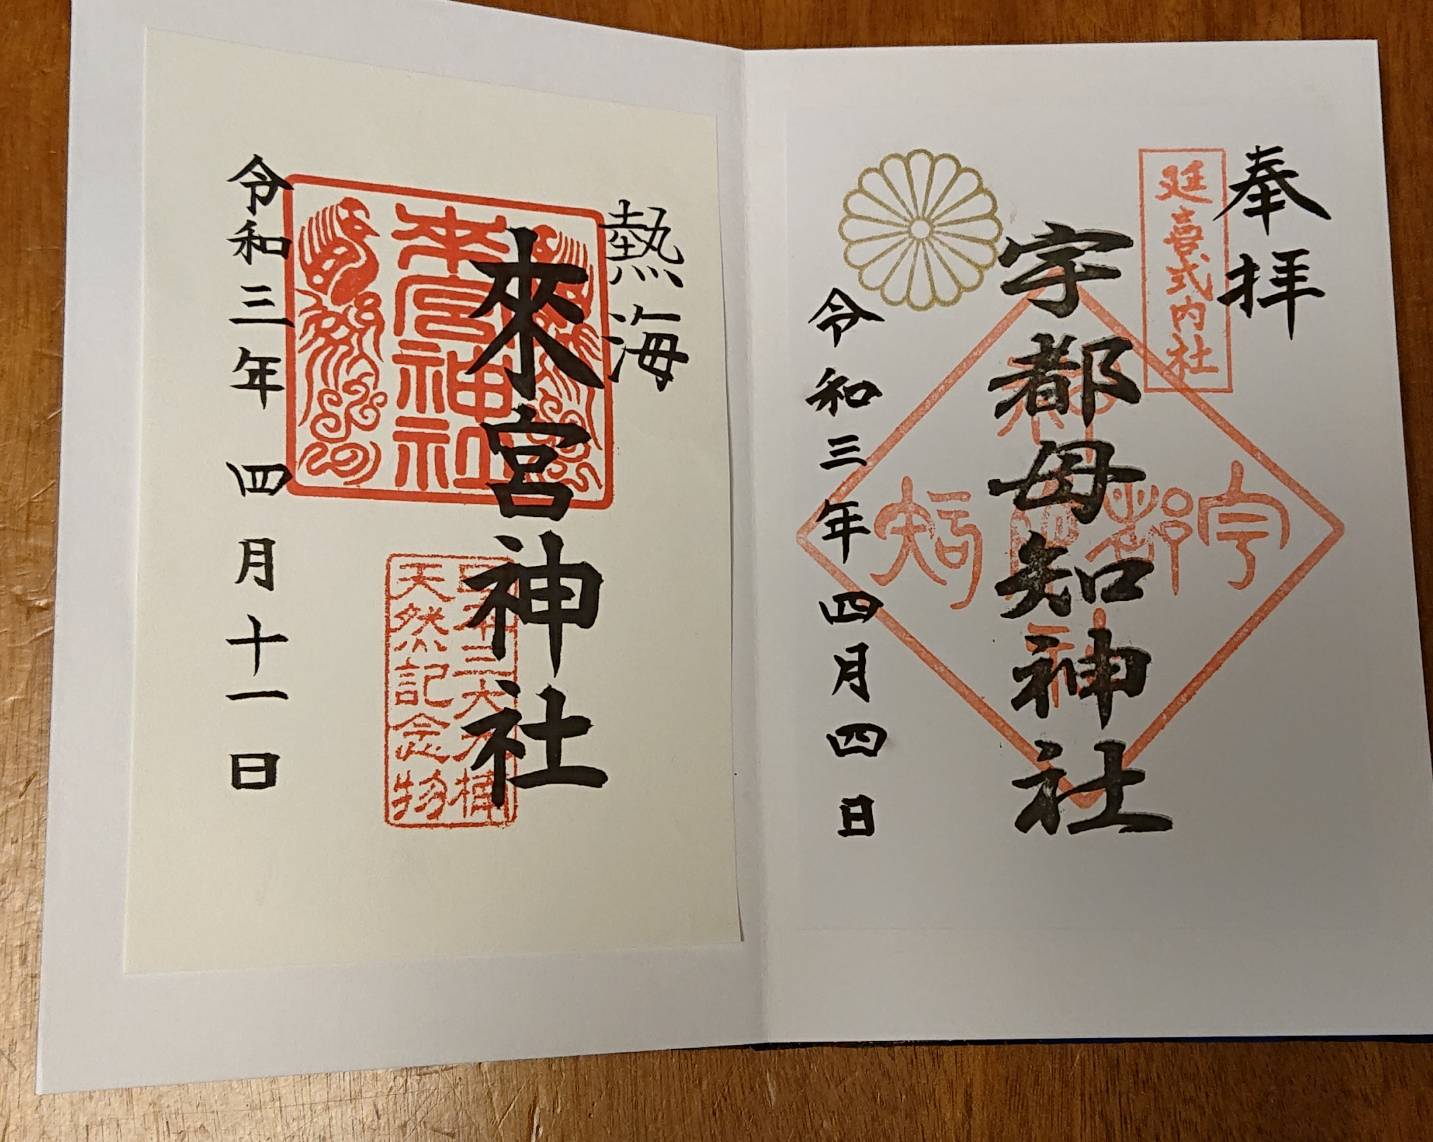 奉拝
延喜式内社
宇都母知神社
令和三年四月四日
熱海
來宮神社
來宮神社
天然記念物
令和三年四月十一日